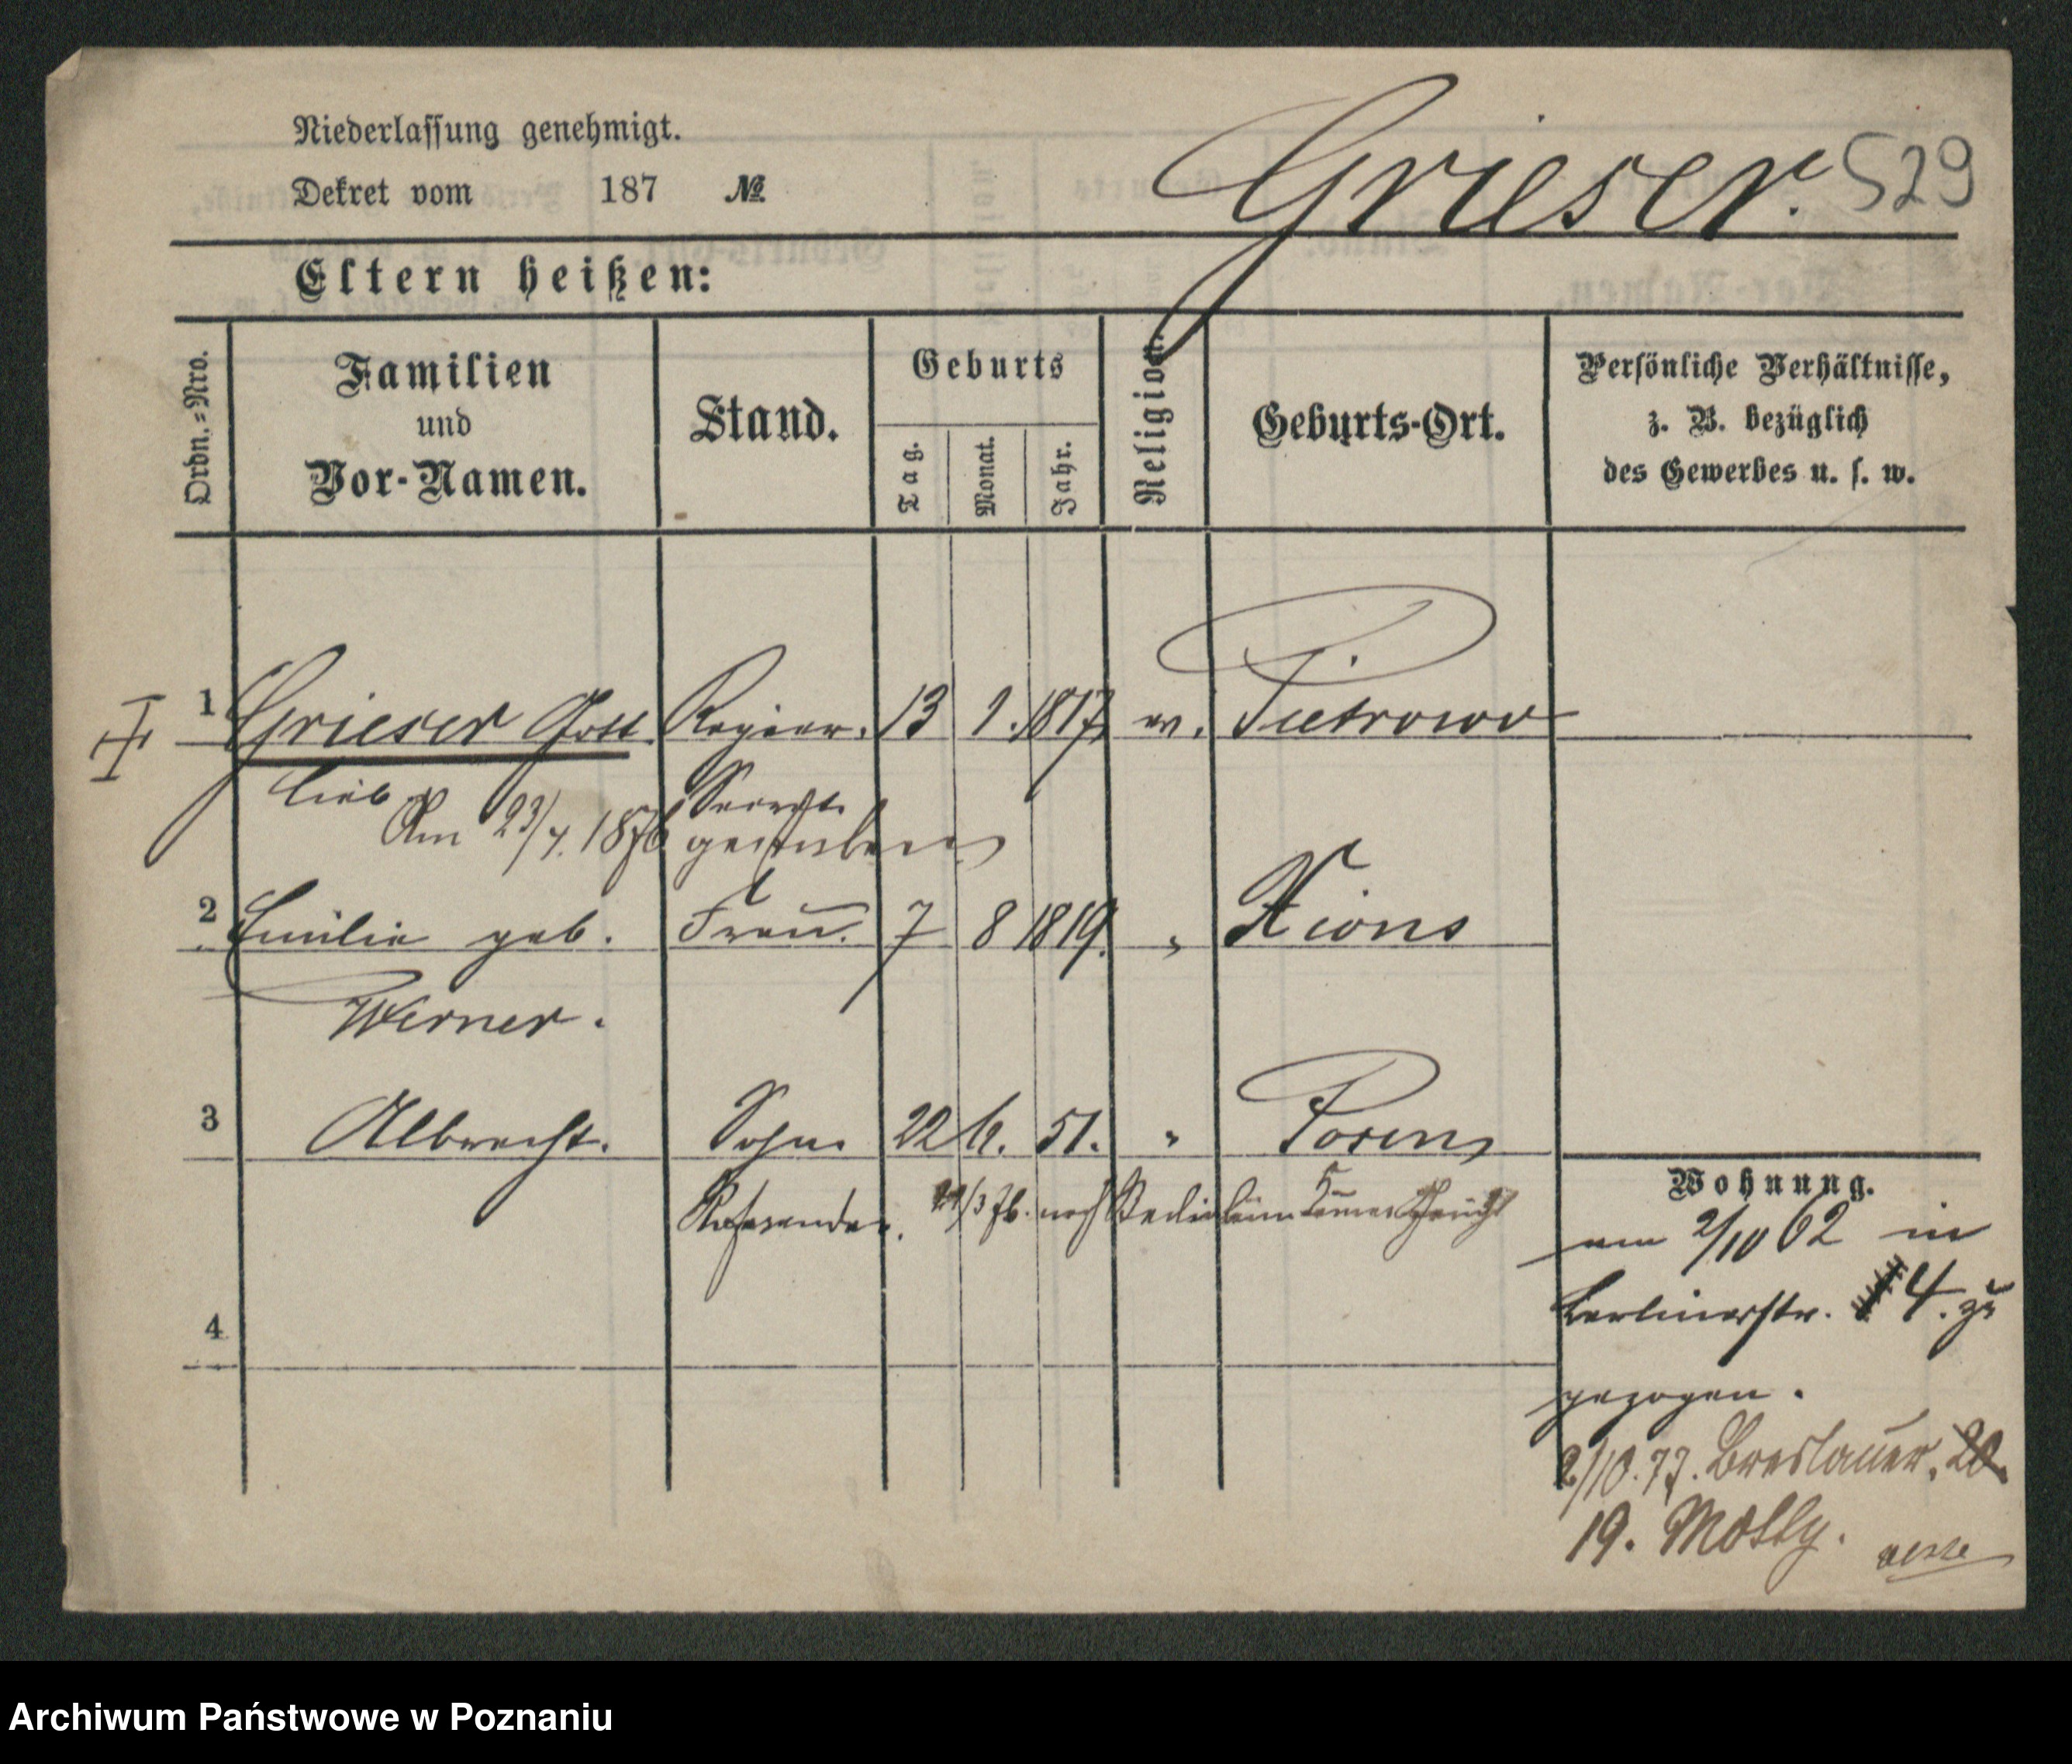 Niederlassung genehmigt.
Dekret vom 187 № Grieser. 529
Eltern heißen:
Ordn.-Nro. Familien und Vor-Namen. Stand. Geburts Tag. Monat. Jahr. Religion. Geburts-Ort. Persönliche Verhältnisse, z. B. bezüglich des Gewerbes u. s. w.
1 Grieser Gott Regier. 13 1. 1817 ev. Pietrowo
lieb Secret.
Am 23/7. 1876 gestorben
2 Emilie geb. Frau. 7 8 1819. " Xions
Werner.
3 Albrecht. Sohn 22 6. 51. " Posen
Wohnung.
Referendar. nach Berlin beim
am 2/10 62 in
Berlinerstr. 4. zu
4
gezogen.
2/10. 77. Breslauer. 20.
19. Motty.
Archiwum Państwowe w Poznaniu